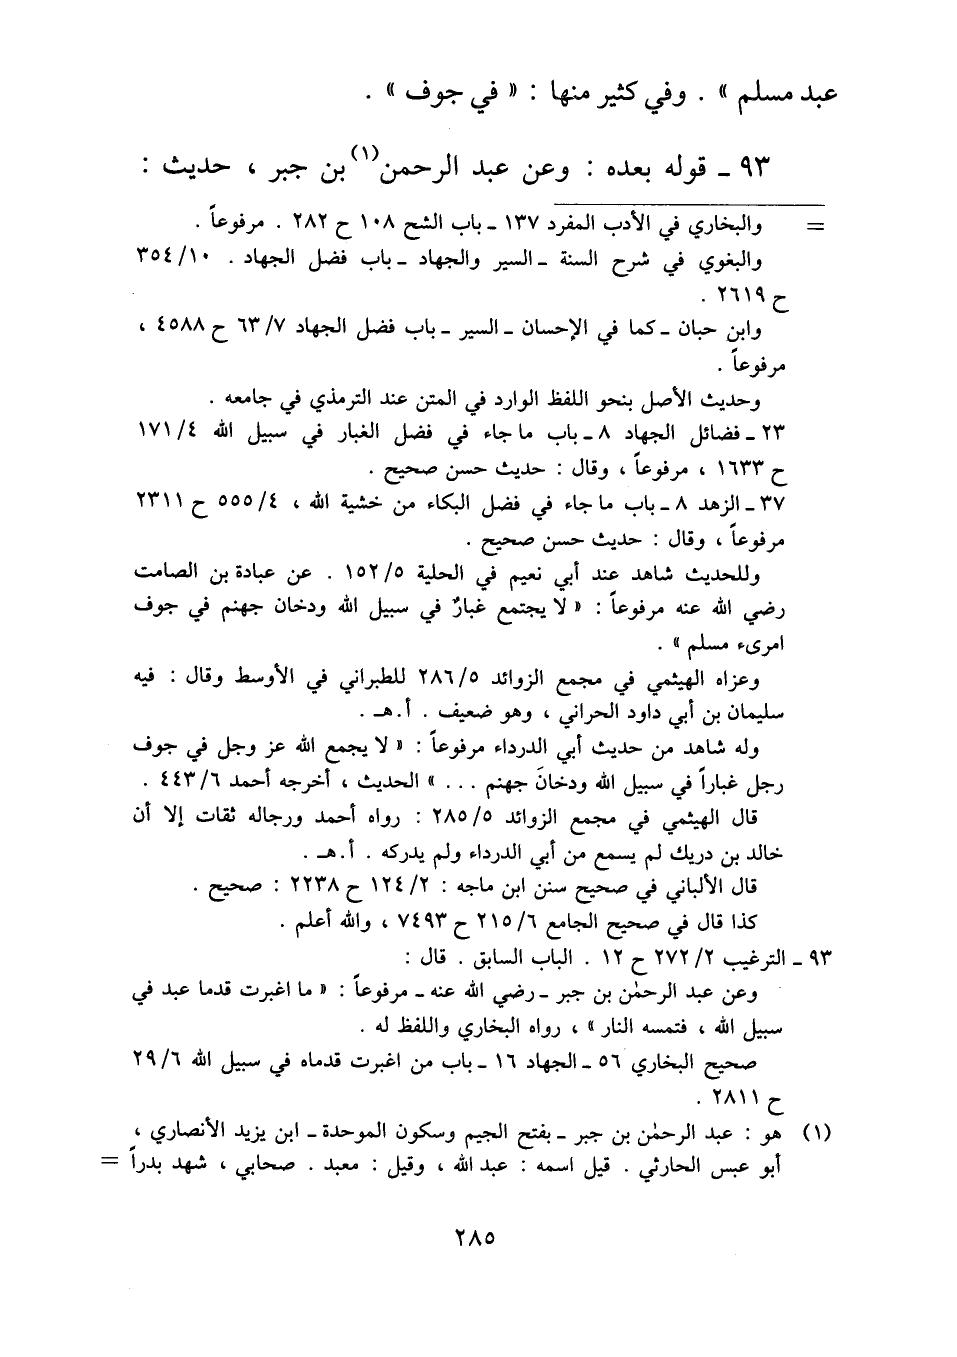 عبد مسلم » . وفي كثير منها : « في جوف » .
٩٣ ـ قوله بعده : وعن عبد الرحمن(١) بن جبر ، حديث :
= والبخاري في الأدب المفرد ١٣٧ ـ باب الشح ١٠٨ ح ٢٨٢ . مرفوعاً .
والبغوي في شرح السنة ـ السير والجهاد ـ باب فضل الجهاد . ١٠/ ٣٥٤
ح ٢٦١٩ .
وابن حبان ـ كما في الإحسان ـ السير ـ باب فضل الجهاد ٧/ ٦٣ ح ٤٥٨٨ ،
مرفوعاً .
وحديث الأصل بنحو اللفظ الوارد في المتن عند الترمذي في جامعه .
٢٣ ـ فضائل الجهاد ٨ ـ باب ما جاء في فضل الغبار في سبيل الله ٤/ ١٧١
ح ١٦٣٣ ، مرفوعاً ، وقال : حديث حسن صحيح .
٣٧ ـ الزهد ٨ ـ باب ما جاء في فضل البكاء من خشية الله ، ٤/ ٥٥٥ ح ٢٣١١
مرفوعاً ، وقال : حديث حسن صحيح .
وللحديث شاهد عند أبي نعيم في الحلية ٥/ ١٥٢ . عن عبادة بن الصامت
رضي الله عنه مرفوعاً : « لا يجتمع غبارٌ في سبيل الله ودخان جهنم في جوف
امرىء مسلم » .
وعزاه الهيثمي في مجمع الزوائد ٥/ ٢٨٦ للطبراني في الأوسط وقال : فيه
سليمان بن أبي داود الحراني ، وهو ضعيف . أ.هـ .
وله شاهد من حديث أبي الدرداء مرفوعاً : « لا يجمع الله عز وجل في جوف
رجل غباراً في سبيل الله ودخانَ جهنم . . . » الحديث ، أخرجه أحمد ٦/ ٤٤٣ .
قال الهيثمي في مجمع الزوائد ٥/ ٢٨٥ : رواه أحمد ورجاله ثقات إلا أن
خالد بن دريك لم يسمع من أبي الدرداء ولم يدركه . أ.هـ .
قال الألباني في صحيح سنن ابن ماجه : ٢/ ١٢٤ ح ٢٢٣٨ : صحيح .
كذا قال في صحيح الجامع ٦/ ٢١٥ ح ٧٤٩٣ ، والله أعلم .
٩٣ ـ الترغيب ٢/ ٢٧٢ ح ١٢ . الباب السابق . قال :
وعن عبد الرحمٰن بن جبر ـ رضي الله عنه ـ مرفوعاً : « ما اغبرت قدما عبد في
سبيل الله ، فتمسه النار » ، رواه البخاري واللفظ له .
صحيح البخاري ٥٦ ـ الجهاد ١٦ ـ باب من اغبرت قدماه في سبيل الله ٦/ ٢٩
ح ٢٨١١ .
(١) هو : عبد الرحمٰن بن جبر ـ بفتح الجيم وسكون الموحدة ـ ابن يزيد الأنصاري ،
أبو عبس الحارثي . قيل اسمه : عبد الله ، وقيل : معبد . صحابي ، شهد بدراً =
٢٨٥